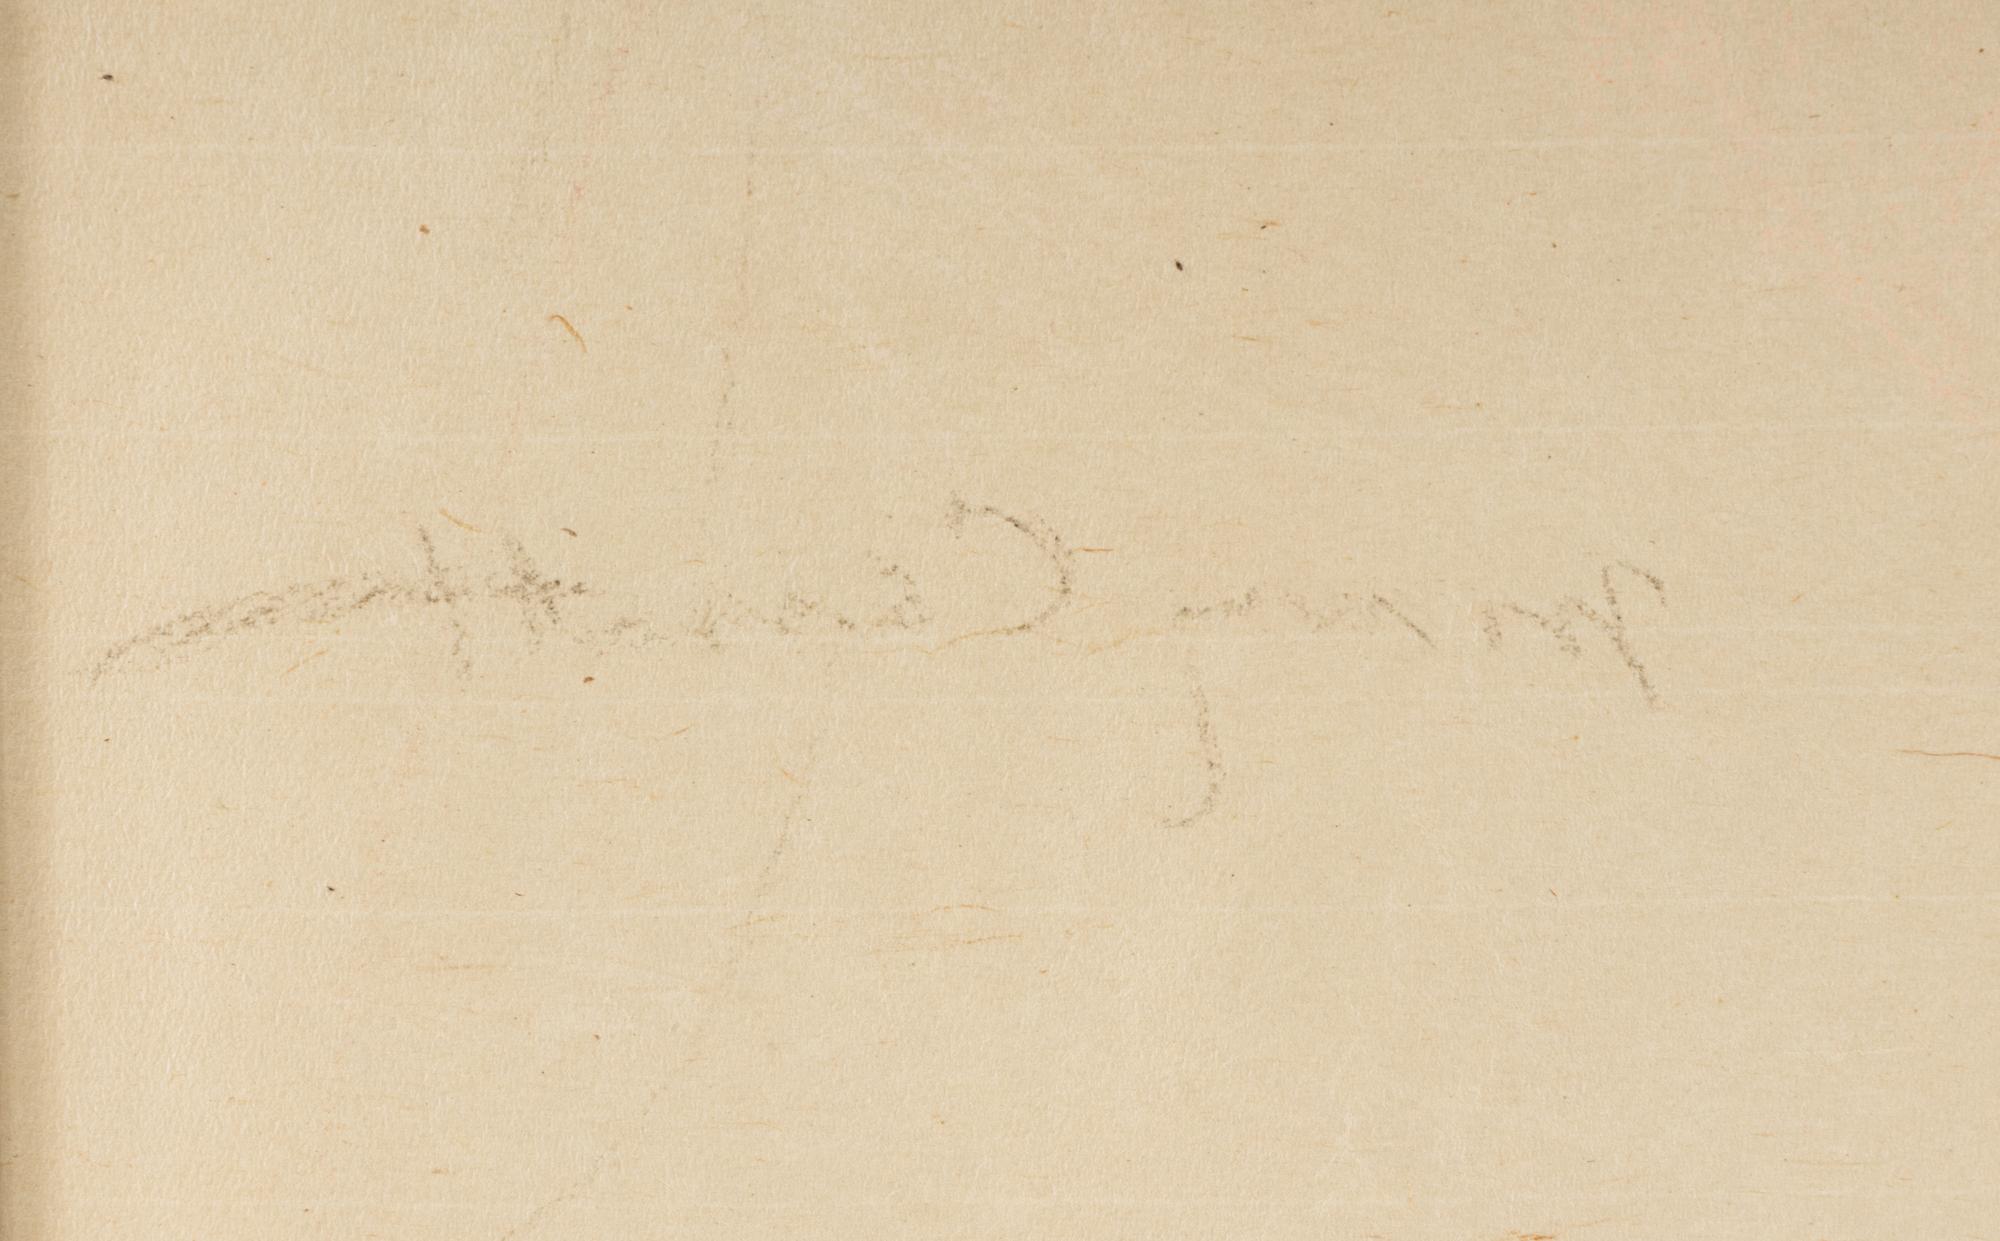 Mary Cassatt